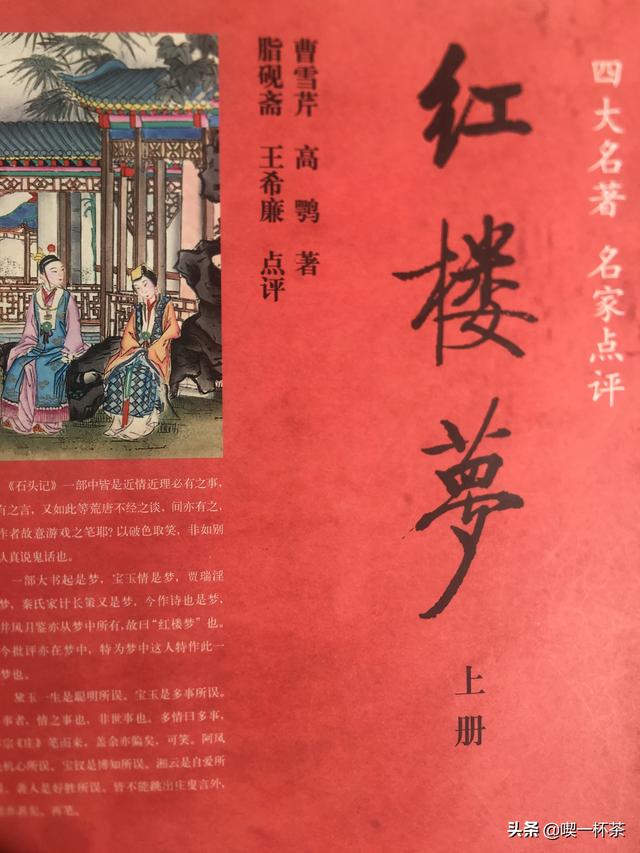 四大名著 名家点评
红楼梦
上册
曹雪芹 高鹗 著
脂砚斋 王希廉 点评
《石头记》一部中皆是近情近理必有之事，
有之言，又如此等荒唐不经之谈，间亦有之，
作者故意游戏之笔耶？以破色取笑，非如别
人真说鬼话也。
一部大书起是梦，宝玉情是梦，贾瑞淫
梦，秦氏家计长策又是梦，今作诗也是梦，
井风月鉴亦从梦中所有，故曰“红楼梦”也。
今批评亦在梦中，特为梦中这人特作此一
梦也。
黛玉一生是聪明所误。宝玉是多事所误。
事者，情之事也，非世事也。多情曰多事，
宗《庄》笔而来，盖余亦偏矣，可笑。阿凤
机心所误。宝钗是博知所误。湘云是自爱所
袭人是好胜所误。皆不能跳出庄叟言外，
亦甚矣。再笔。
头条 @喫一杯茶